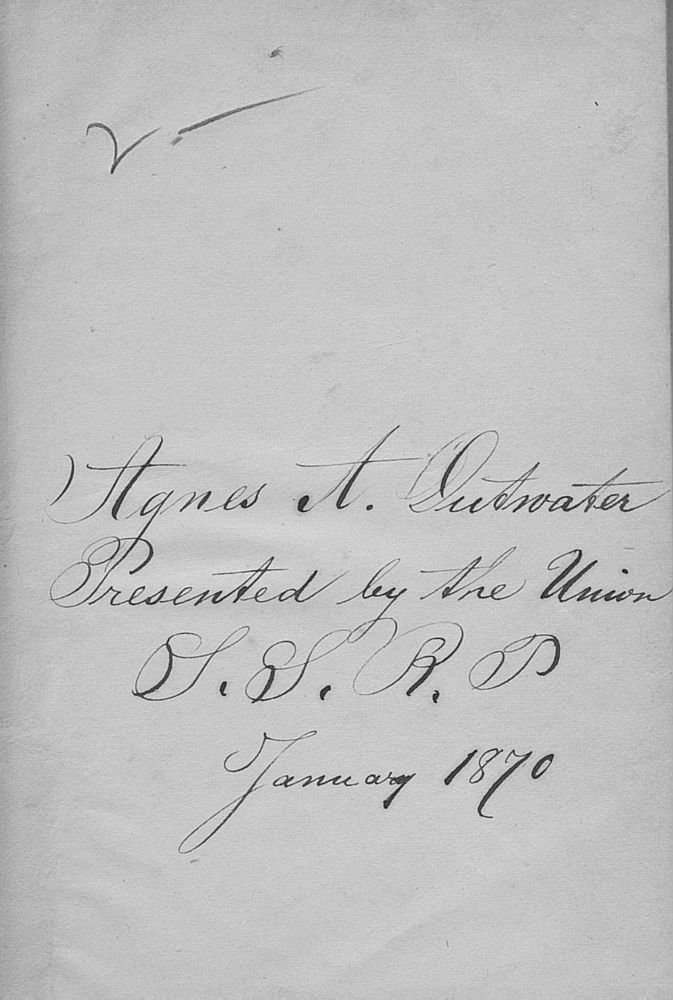 Agnes A. Outwater
Presented by the Union
S. S. R. P
January 1870